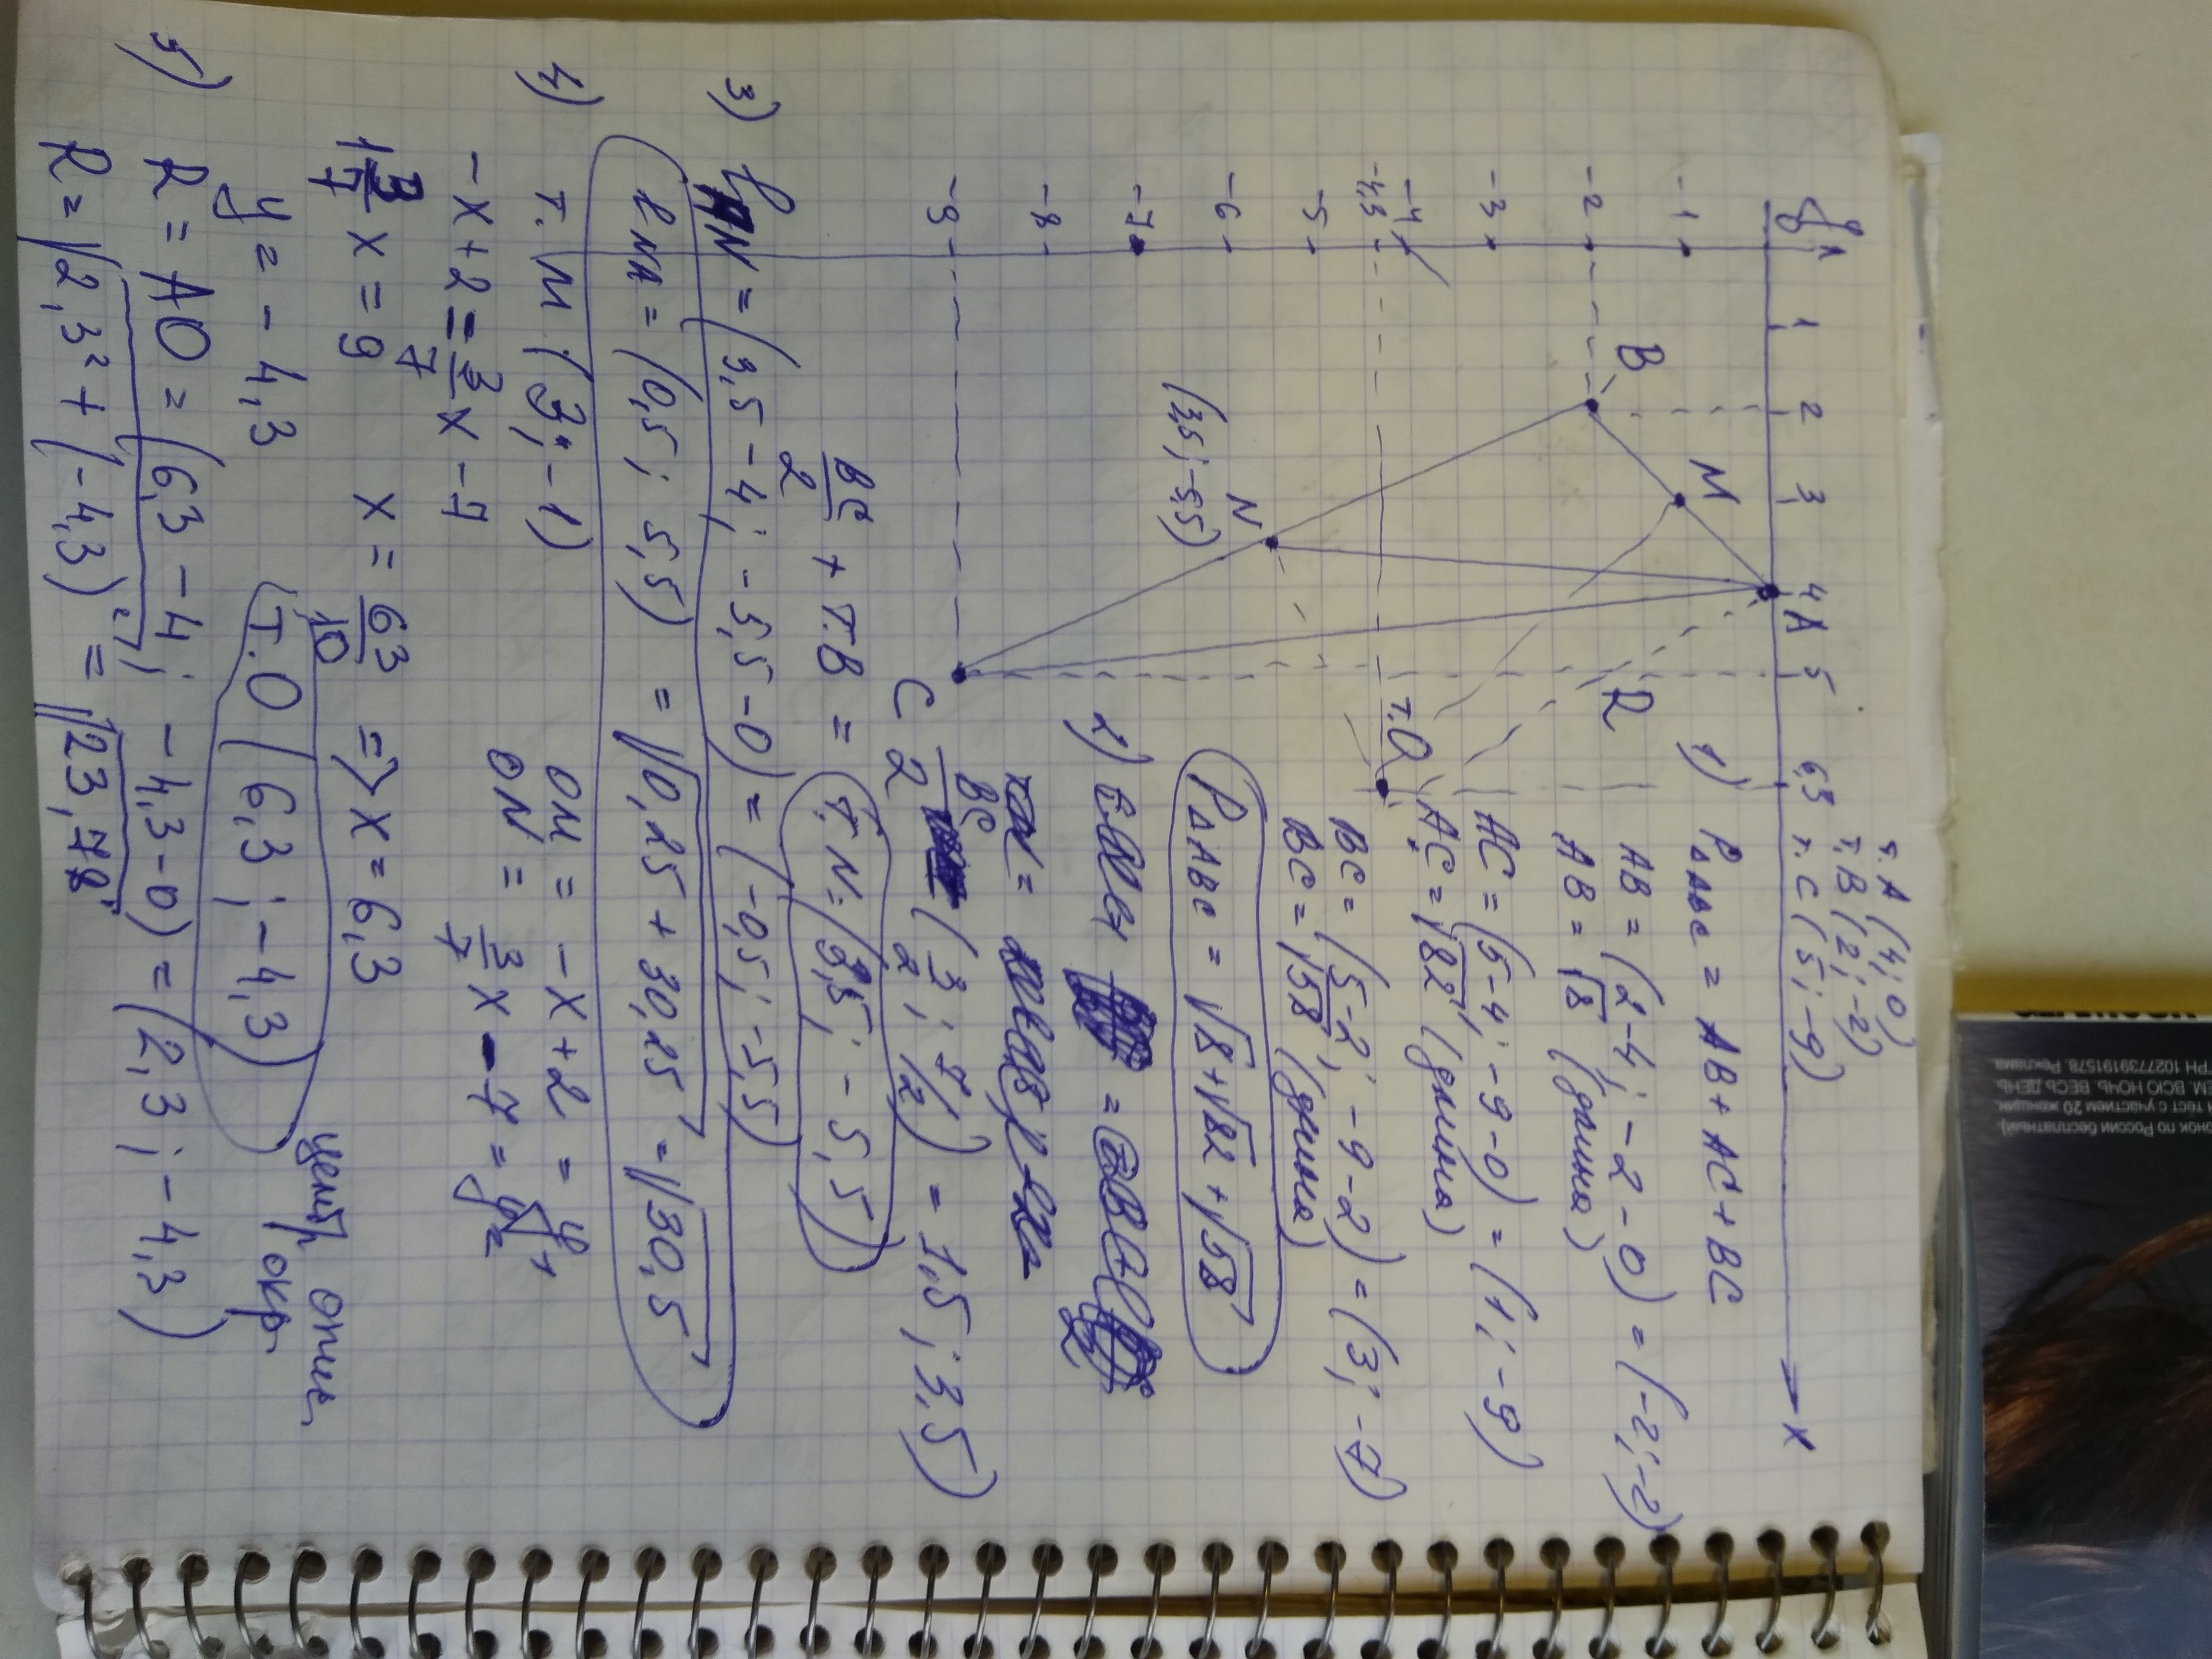 т. A (4; 0)
т. B (2; -2)
т. C (5; -9)
y
1 2 3 4 A 5 6,3 x
-1
-2
-3
-4
-4,3
-5
-6
-7
-8
-9
B
M
N
(3,5; -5,5)
C
R
т.О
1) P△ABC = AB + AC + BC
AB = (2-4; -2-0) = (-2; -2)
AB = √8 (длина)
AC = (5-4; -9-0) = (1; -9)
AC = √82 (длина)
BC = (5-2; -9-2) = (3; -7)
BC = √58 (длина)
P△ABC = √8 + √82 + √58
2)
BC/2 (3/2; 7/2) = 1,5; 3,5)
BC/2 + т.B = т. N = (3,5; -5,5)
3) N = (3,5 - 4; -5,5 - 0) = (-0,5; -5,5)
ℓ NA = (0,5; 5,5) = √0,25 + 30,25 = √30,5
4) т. M (3; -1)
OM = -x+2 = y₁
ON = 3/7 x - 7 = y₂
-x+2 = 3/7 x - 7
1 3/7 x = 9 x = 63/10 => x = 6,3
y = -4,3
т. О (6,3; -4,3) центр опис. окр.
5) R = AO = (6,3 - 4; -4,3 - 0) = (2,3; -4,3)
R = √2,3² + (-4,3)² = √23,78
ГРН 1027739191578. Реклама
ЕМ. ВСЮ НОЧЬ. ВЕСЬ ДЕНЬ
тест с участием 20 женщин.
онок по России бесплатный).